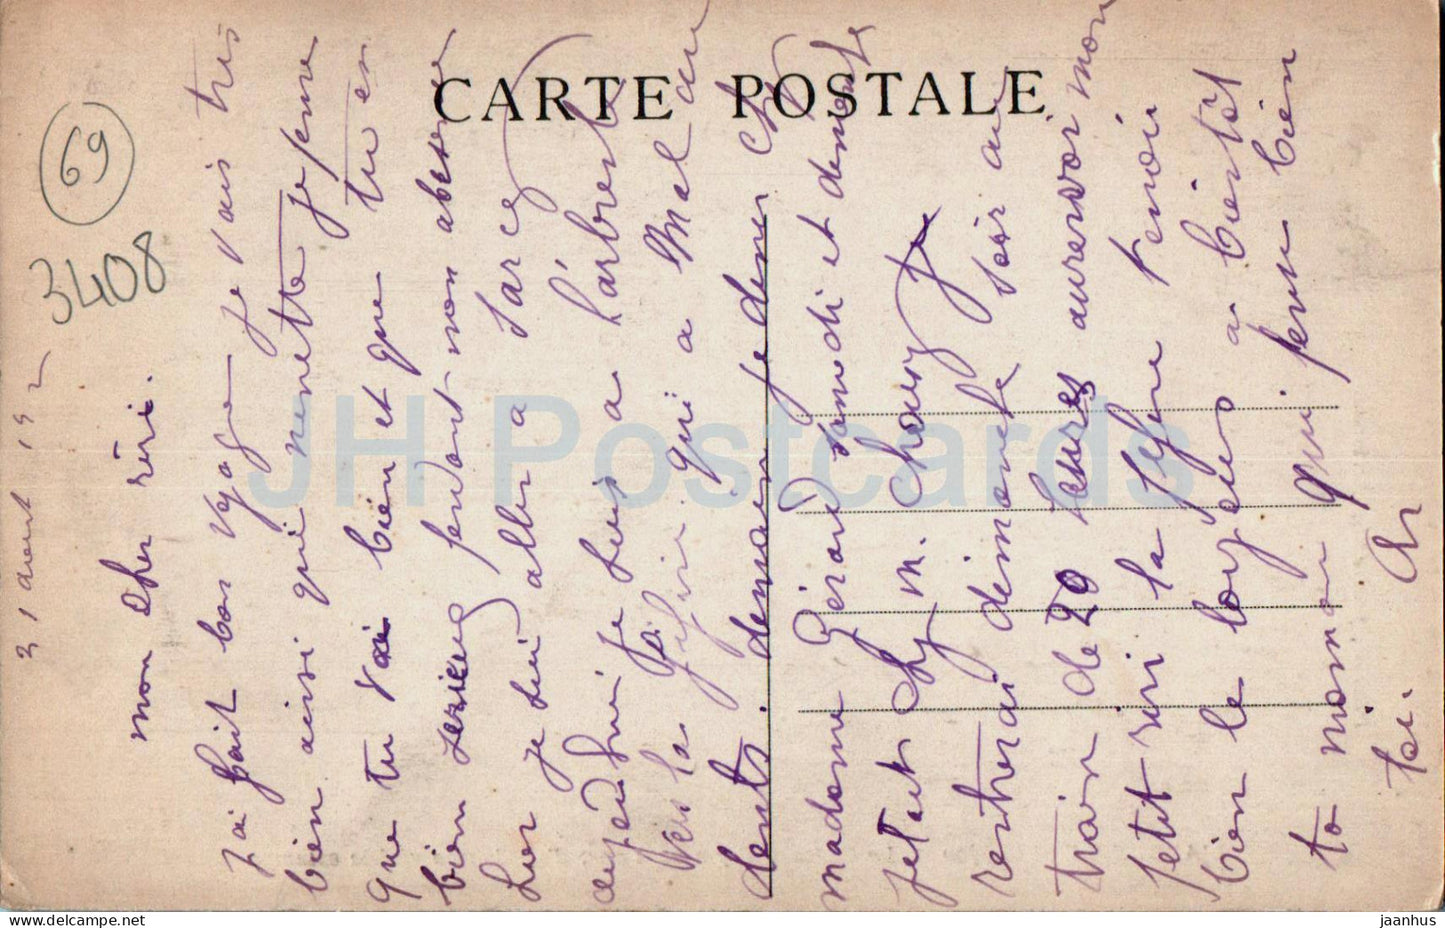 CARTE POSTALE
69
3408
31 aout 192
mon cher riri.
j'ai fait bon vyage je vais très
bien ainsi qui nenette je pense
que tu vai bien et que tu en
bien serieux pendant mon absence
hier je sui aller a Sarcey
aujedhui je suis a L'arbresle
j'ai vu la qui a mal au
dents. demain je dine chez
madame Gérard samedi et dimanche
je à M. Choury je
rentrerai dimanche soir au
train de 20 heures aurevoir mon
petit riri la Tyfene renvoi
bien le boyeus a bientôt
ta maman qui pense bien
a toi.
JH Postcards
jaanhus